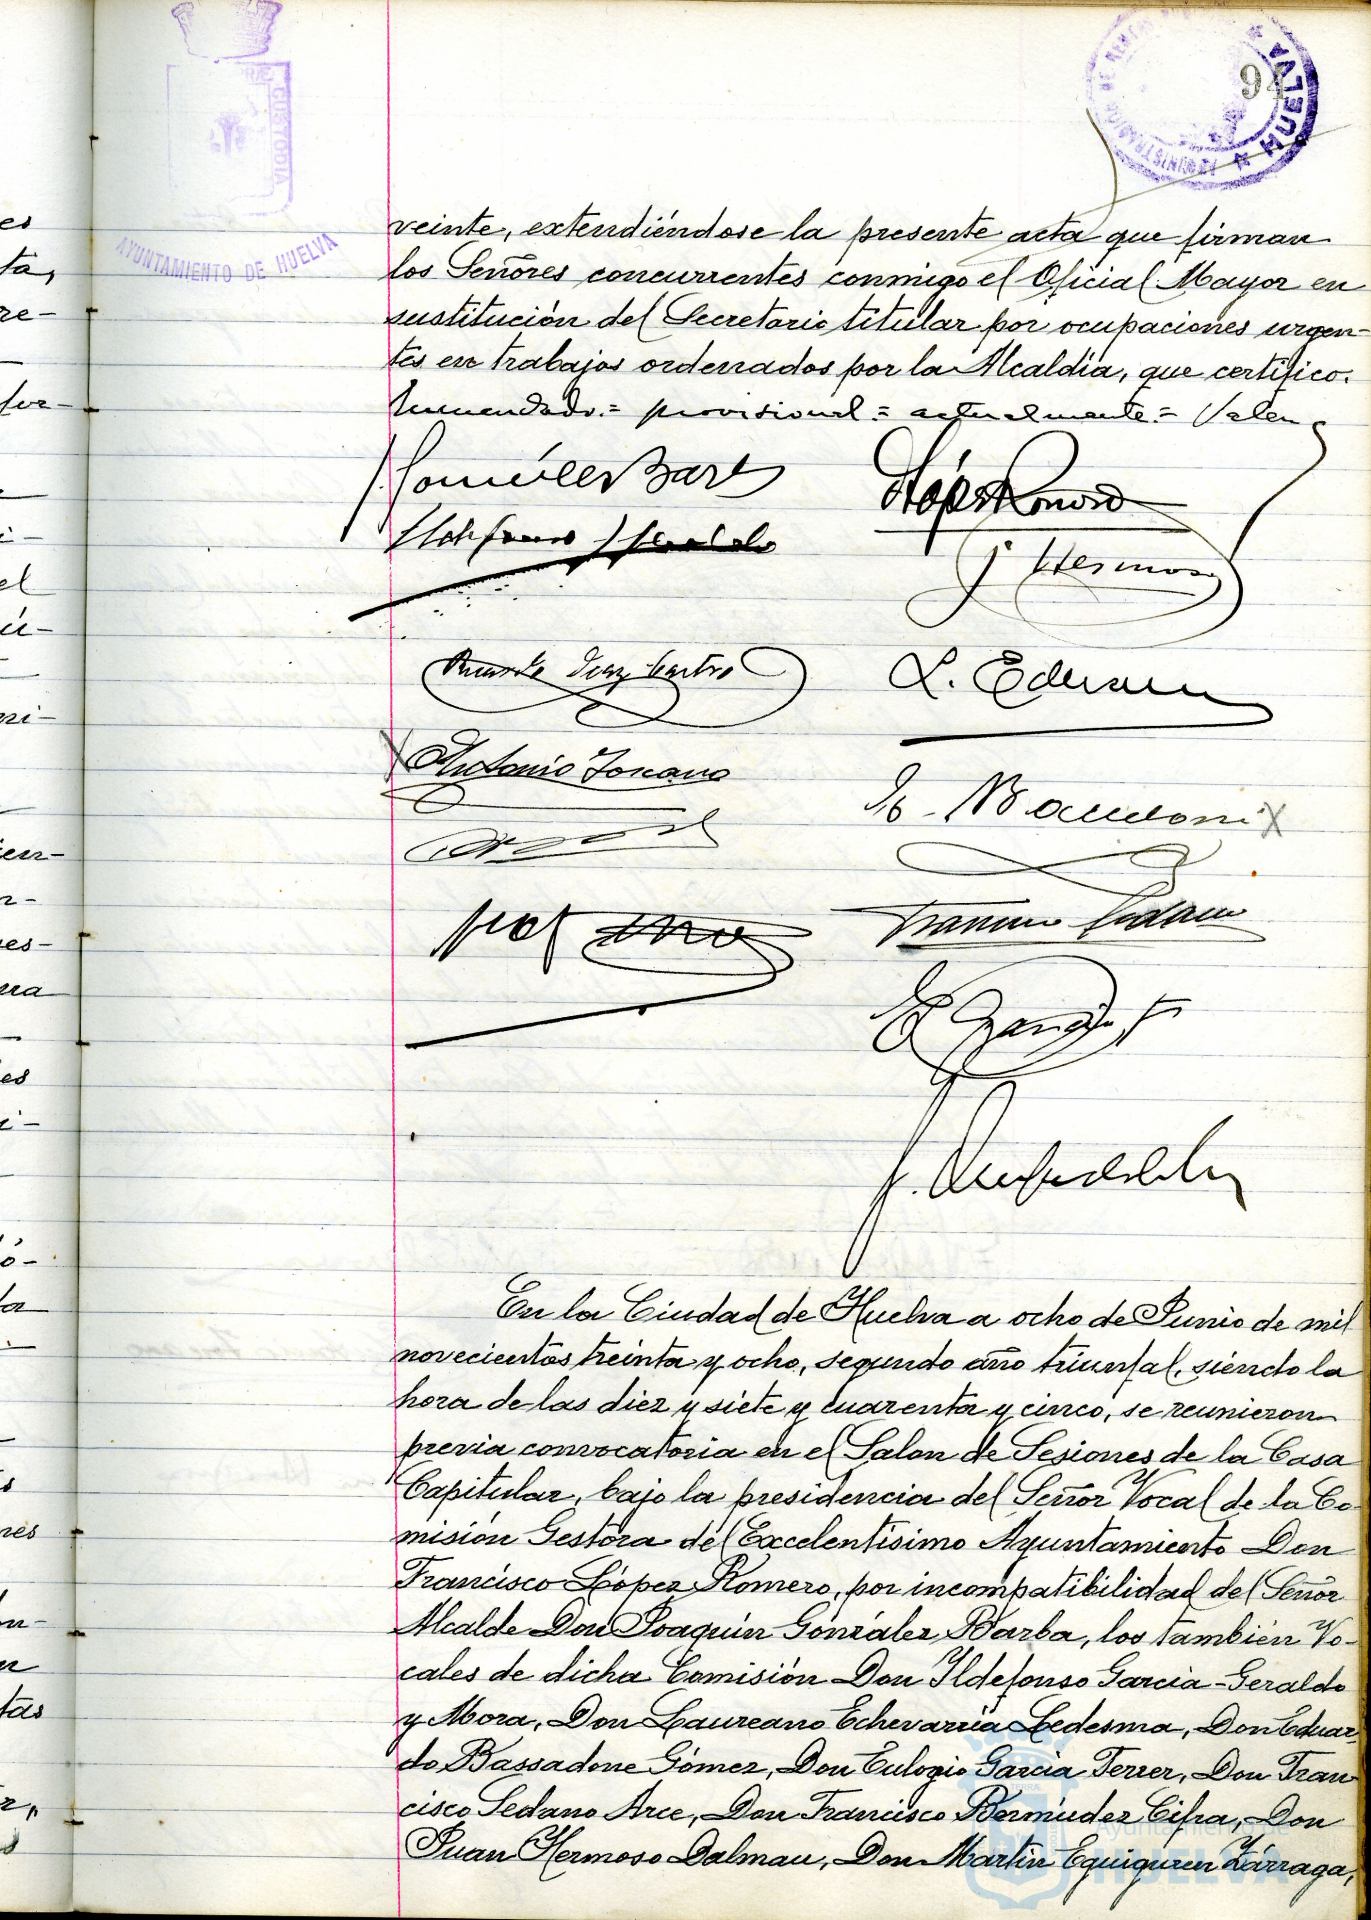 94
ADMINISTRACION DE RENTAS
HUELVA
CUSTODIA
AYUNTAMIENTO DE HUELVA
veinte, extendiéndose la presente acta que firman
los Señores concurrentes conmigo el Oficial Mayor en
sustitución del Secretario titular por ocupaciones urgen-
tes en trabajos ordenados por la Alcaldía, que certifico.
Enmendado.= provisional = actualmente.= Valen
J. González Barba
López Romero
J. Hermoso
Ricardo Diaz Castro
L. Echevarria
Antonio
E. Bassadone
Francisco Sedano
E. García F
En la Ciudad de Huelva a ocho de Junio de mil
novecientos treinta y ocho, segundo año triunfal, siendo la
hora de las diez y siete y cuarenta y cinco, se reunieron
previa convocatoria en el Salon de Sesiones de la Casa
Capitular, bajo la presidencia del Señor Vocal de la Co-
misión Gestora del Excelentísimo Ayuntamiento Don
Francisco López Romero, por incompatibilidad del Señor
Alcalde Don Joaquín González Barba, los también Vo-
cales de dicha Comisión Don Ildefonso García-Geraldo
y Mora, Don Laureano Echevarría Ledesma, Don Eduar-
do Bassadone Gómez, Don Eulogio García Ferrer, Don Fran
cisco Sedano Arce, Don Francisco Bermúdez Cifra, Don
Juan Hermoso Dalmau, Don Martín Equiguren Zárraga,
Ayuntamiento de
HUELVA